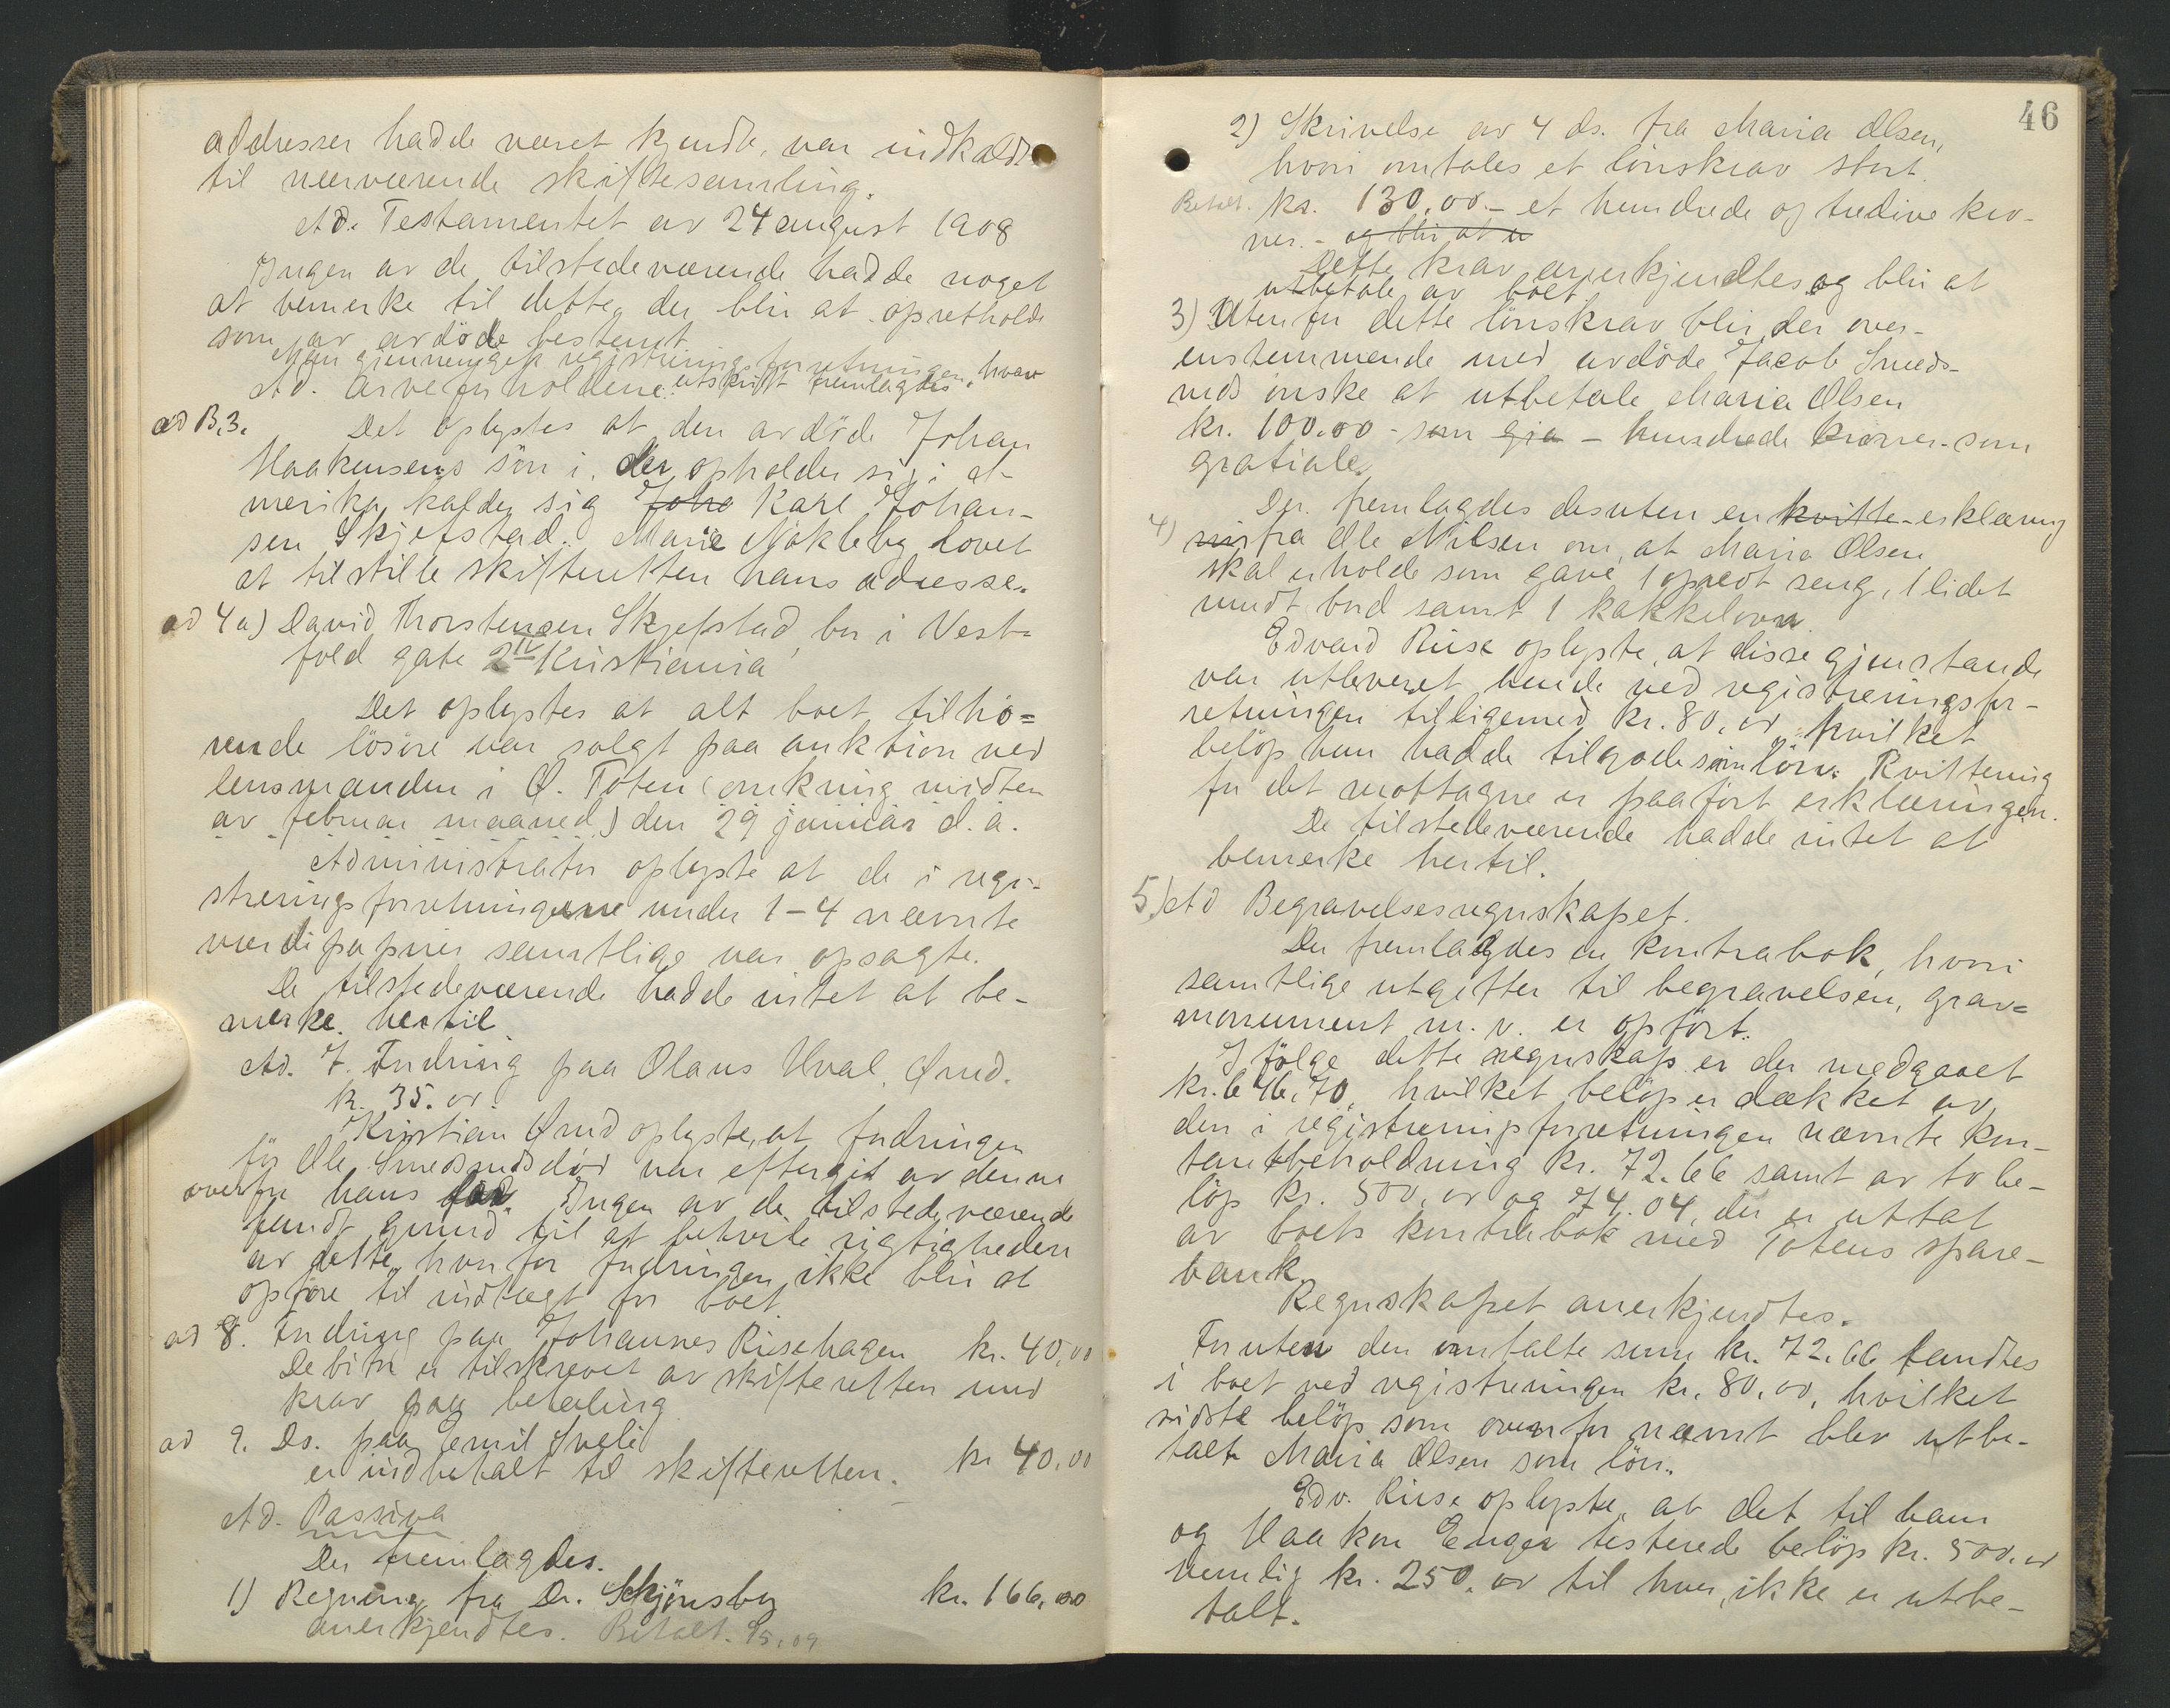 addresser hadde været kjendt, var indkaldt
til nærværende skiftesamling.
Ad. Testamentet av 24 august 1908
Ingen av de tilstedeværende hadde noget
at bemerke til dette, der blir at opretholde
som av avdöde bestemt.
Man gjennemgik registreringsforretningen, hvor
Ad. Arveforholdene. utskrift fremlagdes.
ad B.3.
Det oplystes at den avdöde Johan
Haakensens sön i, der opholder sig i A-
merika kalder sig Joha Karl Johan-
sen Skjefstad. Marie Nökleby lovet
at tilstille skifteretten hans adresse.
ad 4a) David Thorstensen Skjefstad, bor i Vest-
fold gate 2 IV Kristiania
Det oplystes at alt boet tilhö-
rende lösöre var solgt paa auktion ved
lensmanden i Ø. Toten (omkring midten
av februar maaned) den 29 januar d. a.
Administrator oplyste at de i regi-
streringsforretningerne under 1-4 nævnte
værdipapirer samtlige var opsagte.
De tilstedeværende hadde intet at be-
merke hertil.
Ad. 7. Fordring paa Olaus Hval, Ørud.
kr. 35. 00.
Kristian Ørud oplyste, at fordringen
för Ole Smedsruds död var eftergit av denne
overfor hans far. Ingen av de tilstedeværende
fandt grund til at betvile rigtigheden
av dette, hvorfor fordringen ikke blir at
opföre til indtægt for boet.
ad 8. Fordring paa Johannes Riisehagen kr. 40,00
Debitor er tilskrevet av skifteretten med
krav paa betaling
ad 9. Do. paa Emil Sveli kr 40,00
er indbetalt til skifteretten.
Ad. Passiva
Der fremlagdes.
1) Regning fra Dr. Skjönsby kr. 166,00
anerkjendtes. Betalt. 9/5.09
46
2) Skrivelse av 4 ds. fra Maria Olsen,
hvori omtales et lönskrav stort
Betalt. kr. 130,00 - et hundrede og tredive kro-
ner. - og blir at u
Dette krav anerkjendtes og blir at
utbetale av boet.
3) Utenfor dette lönskrav blir der over-
ensstemmende med avdöde Jacob Smeds-
ruds önske at utbetale Maria Olsen
kr. 100.00 - som gra - hundrede kroner - som
gratiale.
Der fremlagdes desuten en kvitte- erklæring
4) fra Ole Nilsen om, at Maria Olsen
skal erholde som gave 1 opredt seng, 1 lidet
rundt bord samt 1 kakkelovn.
Edvard Riise oplyste, at disse gjenstande
var utleveret hende ved registreringsfor-
retningen tilligemed kr. 80,00, hvilket
belöp hun hadde tilgode som lön. Kvittering
for det mottagne er paafört erklæringen.
De tilstedeværende hadde intet at
bemerke hertil.
5) Ad Begravelsesregnskapet.
Der fremlagdes en kontrabok, hvori
samtlige utgifter til begravelsen, grav-
monument m. v. er opfört.
Ifölge dette regnskap er der medgaaet
kr. 646,70, hvilket belöp er dækket av
den i registreringsforretningen nævnte kon-
tantbeholdning kr. 72.66 samt av to be-
löp kr. 500,00 og 74.04, der er uttat
av boets kontrabok med Totens spare-
bank.
Regnskapet anerkjendtes.
Foruten den omtalte sum kr. 72.66 fandtes
i boet ved registreringen kr. 80,00, hvilket
sidste belöp som ovenfor nævnt blev utbe-
talt Maria Olsen som lön.
Edv. Riise oplyste, at det til ham
og Haakon Enger testerede belöp kr. 500.00
nemlig kr. 250.00 til hver, ikke er utbe-
talt.